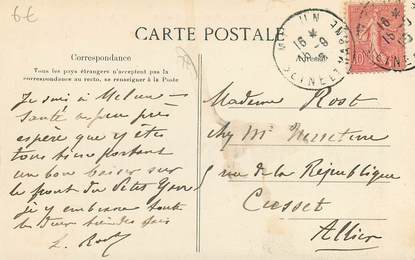 6€
CARTE POSTALE
Correspondance
Tous les pays étrangers n'acceptent pas la
correspondance au recto, se renseigner à la Poste
MELUN
15 *
5-9
SEINE ET MARNE
10
Je suis à Melun
Santé à peu près
espère que y êtes
tous bien portant
un bon baiser sur
le front du petit
je y embrasse toute
les deux bien des fois
L. Rost
Madame Rost
chez Mr
rue de la République
Cusset
Allier